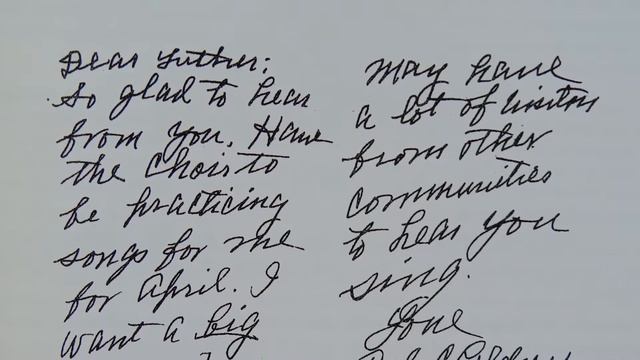 Dear Luther:
So glad to hear
from you. Have
the Choir to
be practicing
songs for me
for April. I
want a big
may have
a lot of visitors
from other
communities
to hear you
sing.
Love